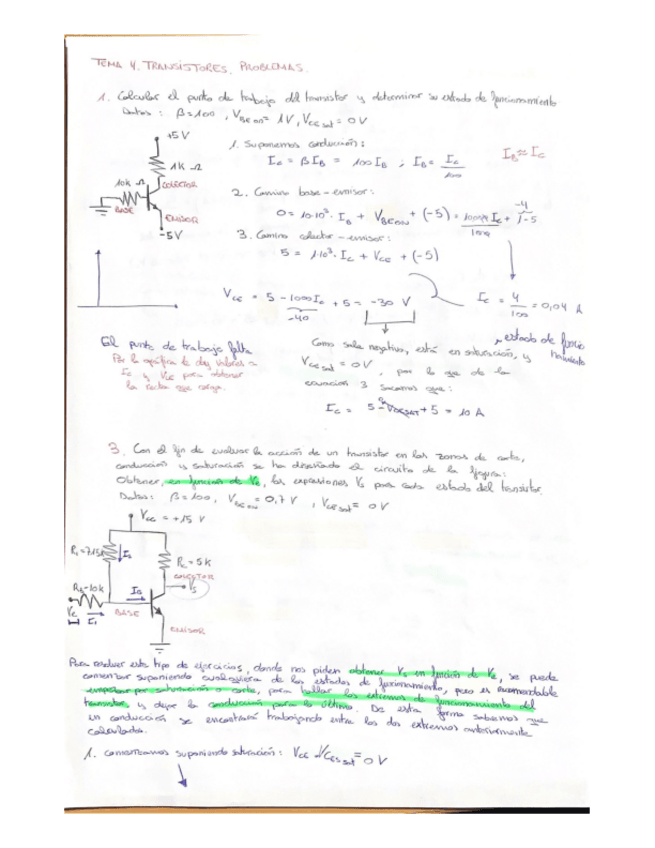 TEMA 4. TRANSISTORES. PROBLEMAS.
1. Calcular el punto de trabajo del transistor y determinar su estado de funcionamiento
Datos: β=100, VBEon= 1V, VCEsat = 0V
+5V
1K Ω
COLECTOR
10K Ω
BASE
EMISOR
-5V
1. Suponemos conducción:
Ic = β IB = 100 IB ; IB = Ic/100
IB ≈ Ic
2. Camino base-emisor:
0 = 10·10³ · IB + VBEON + (-5) =
3. Camino colector-emisor:
5 = 1·10³ · Ic + VCE + (-5)
VCE = 5 - 1000Ic + 5 = -30 V
-40
Ic = 4/100 = 0,04 A
El punto de trabajo falta
Por la gráfica le doy valores a
Ic y VCE para obtener
la recta que
Como sale negativo, está en saturación, y
estado de funcionamiento
VCEsat = 0V, por lo que de la
ecuación 3 sacamos que:
Ic = 5 - VCESAT + 5 = 10 A
3. Con el fin de evaluar la acción de un transistor en las zonas de corte,
conducción y saturación se ha diseñado el circuito de la figura:
Obtener, en función de Ve, las expresiones Vs para cada estado del transistor.
Datos: β=100, VBEon = 0,7 V, VCEsat = 0V
Vcc = +15 V
I2
Rc = 5K
COLECTOR
Vs
IB
Ve
I1
BASE
EMISOR
Para resolver este tipo de ejercicios, donde nos piden obtener Vs en función de Ve, se puede
comenzar suponiendo cualquiera de los estados de funcionamiento, pero es recomendable
empezar por saturación o corte, para hallar los extremos de funcionamiento del
transistor, y dejar la conducción para lo último. De esta forma sabemos que
en conducción se encontrará trabajando entre los dos extremos anteriormente
calculados.
1. Comenzamos suponiendo saturación: VCE = VCEsat = 0V